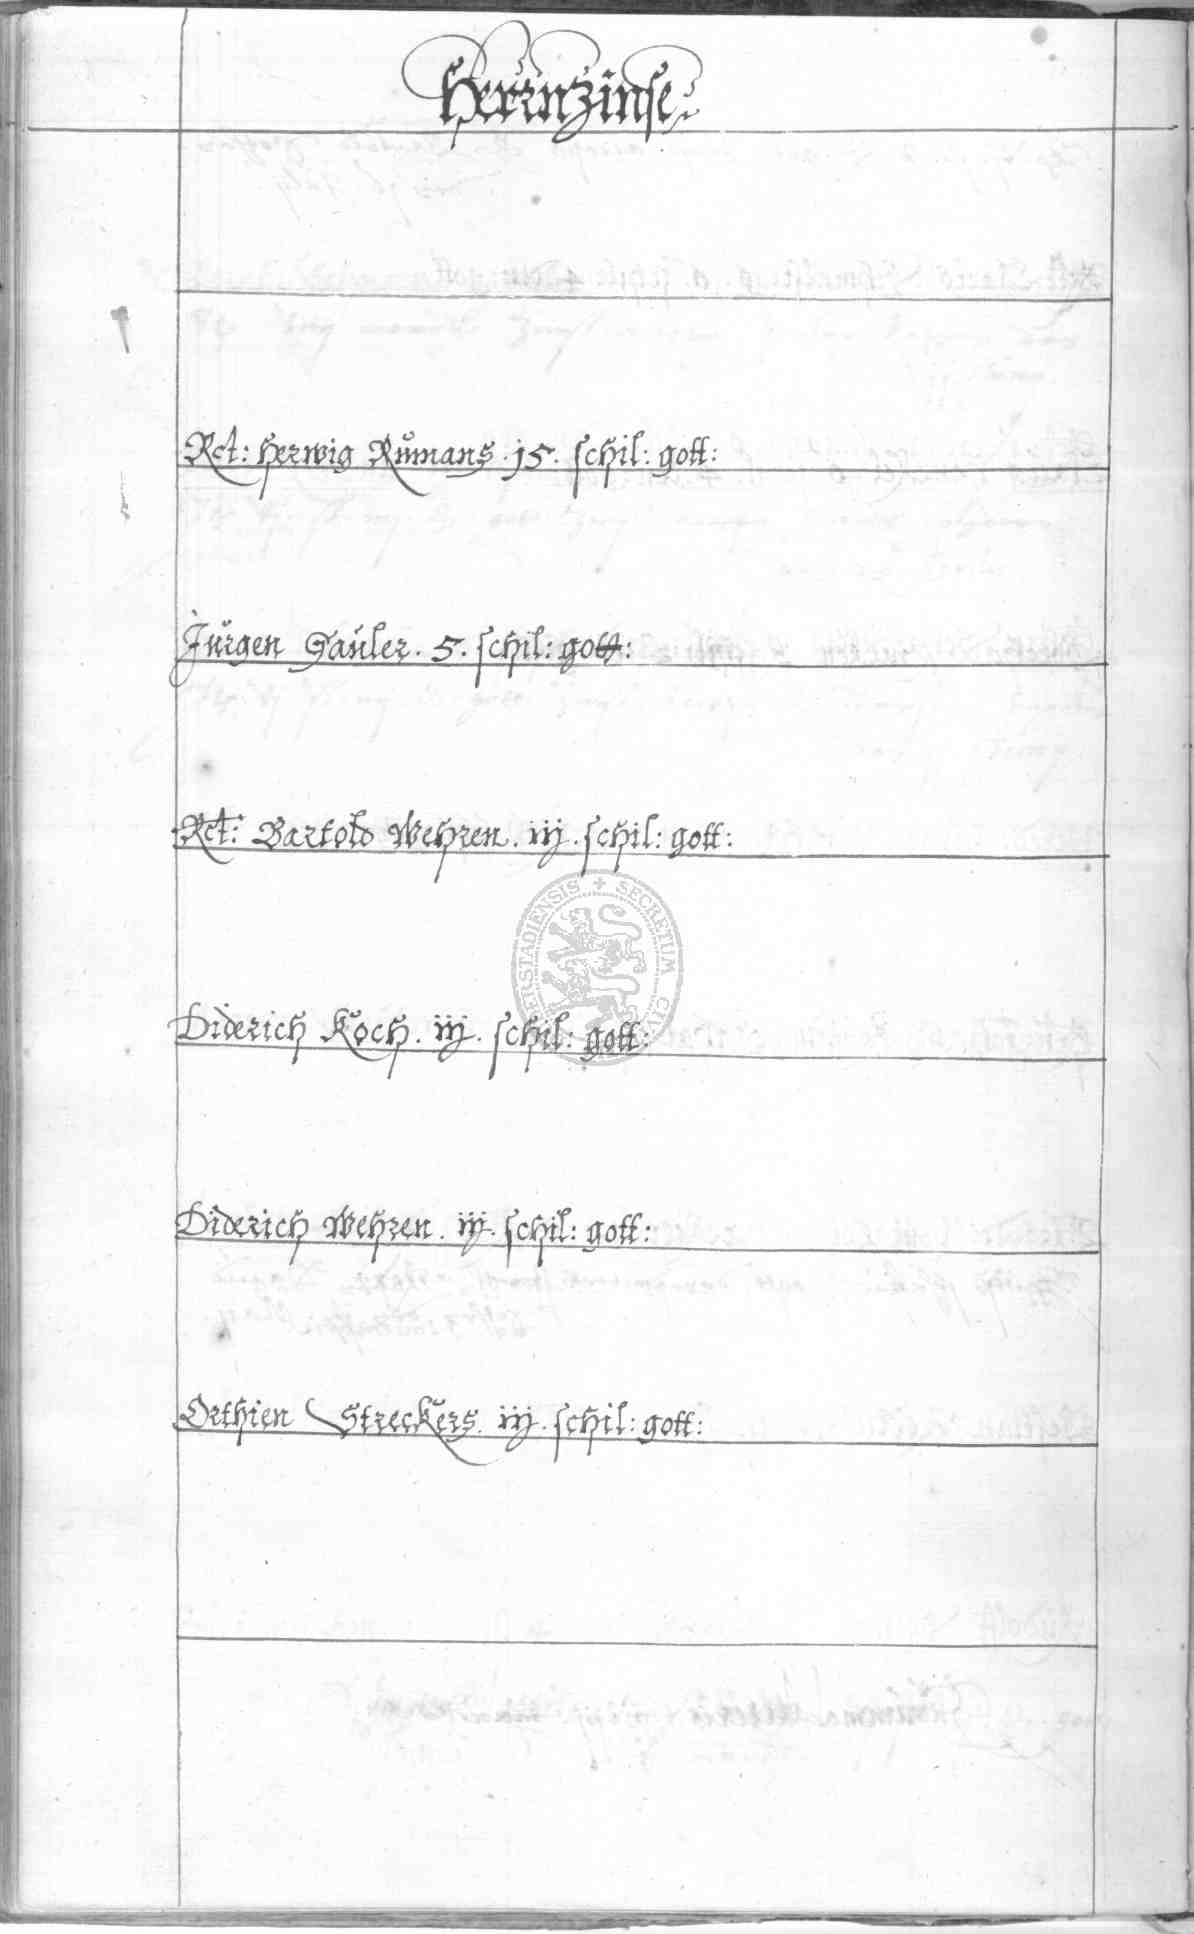 Herrnzinse
Rct: Herwig Rumans . 15 . schil: gott:
Jurgen Sauler . 5 . schil: gott:
Rct: Bartold Wehren . iij . schil: gott:
SECRETUM CIVI
ERSTADIENSIS
Diderich Koch . iij . schil: gott:
Diderich Wehren . iij . schil: gott:
Orthien Streckers . iij . schil: gott: